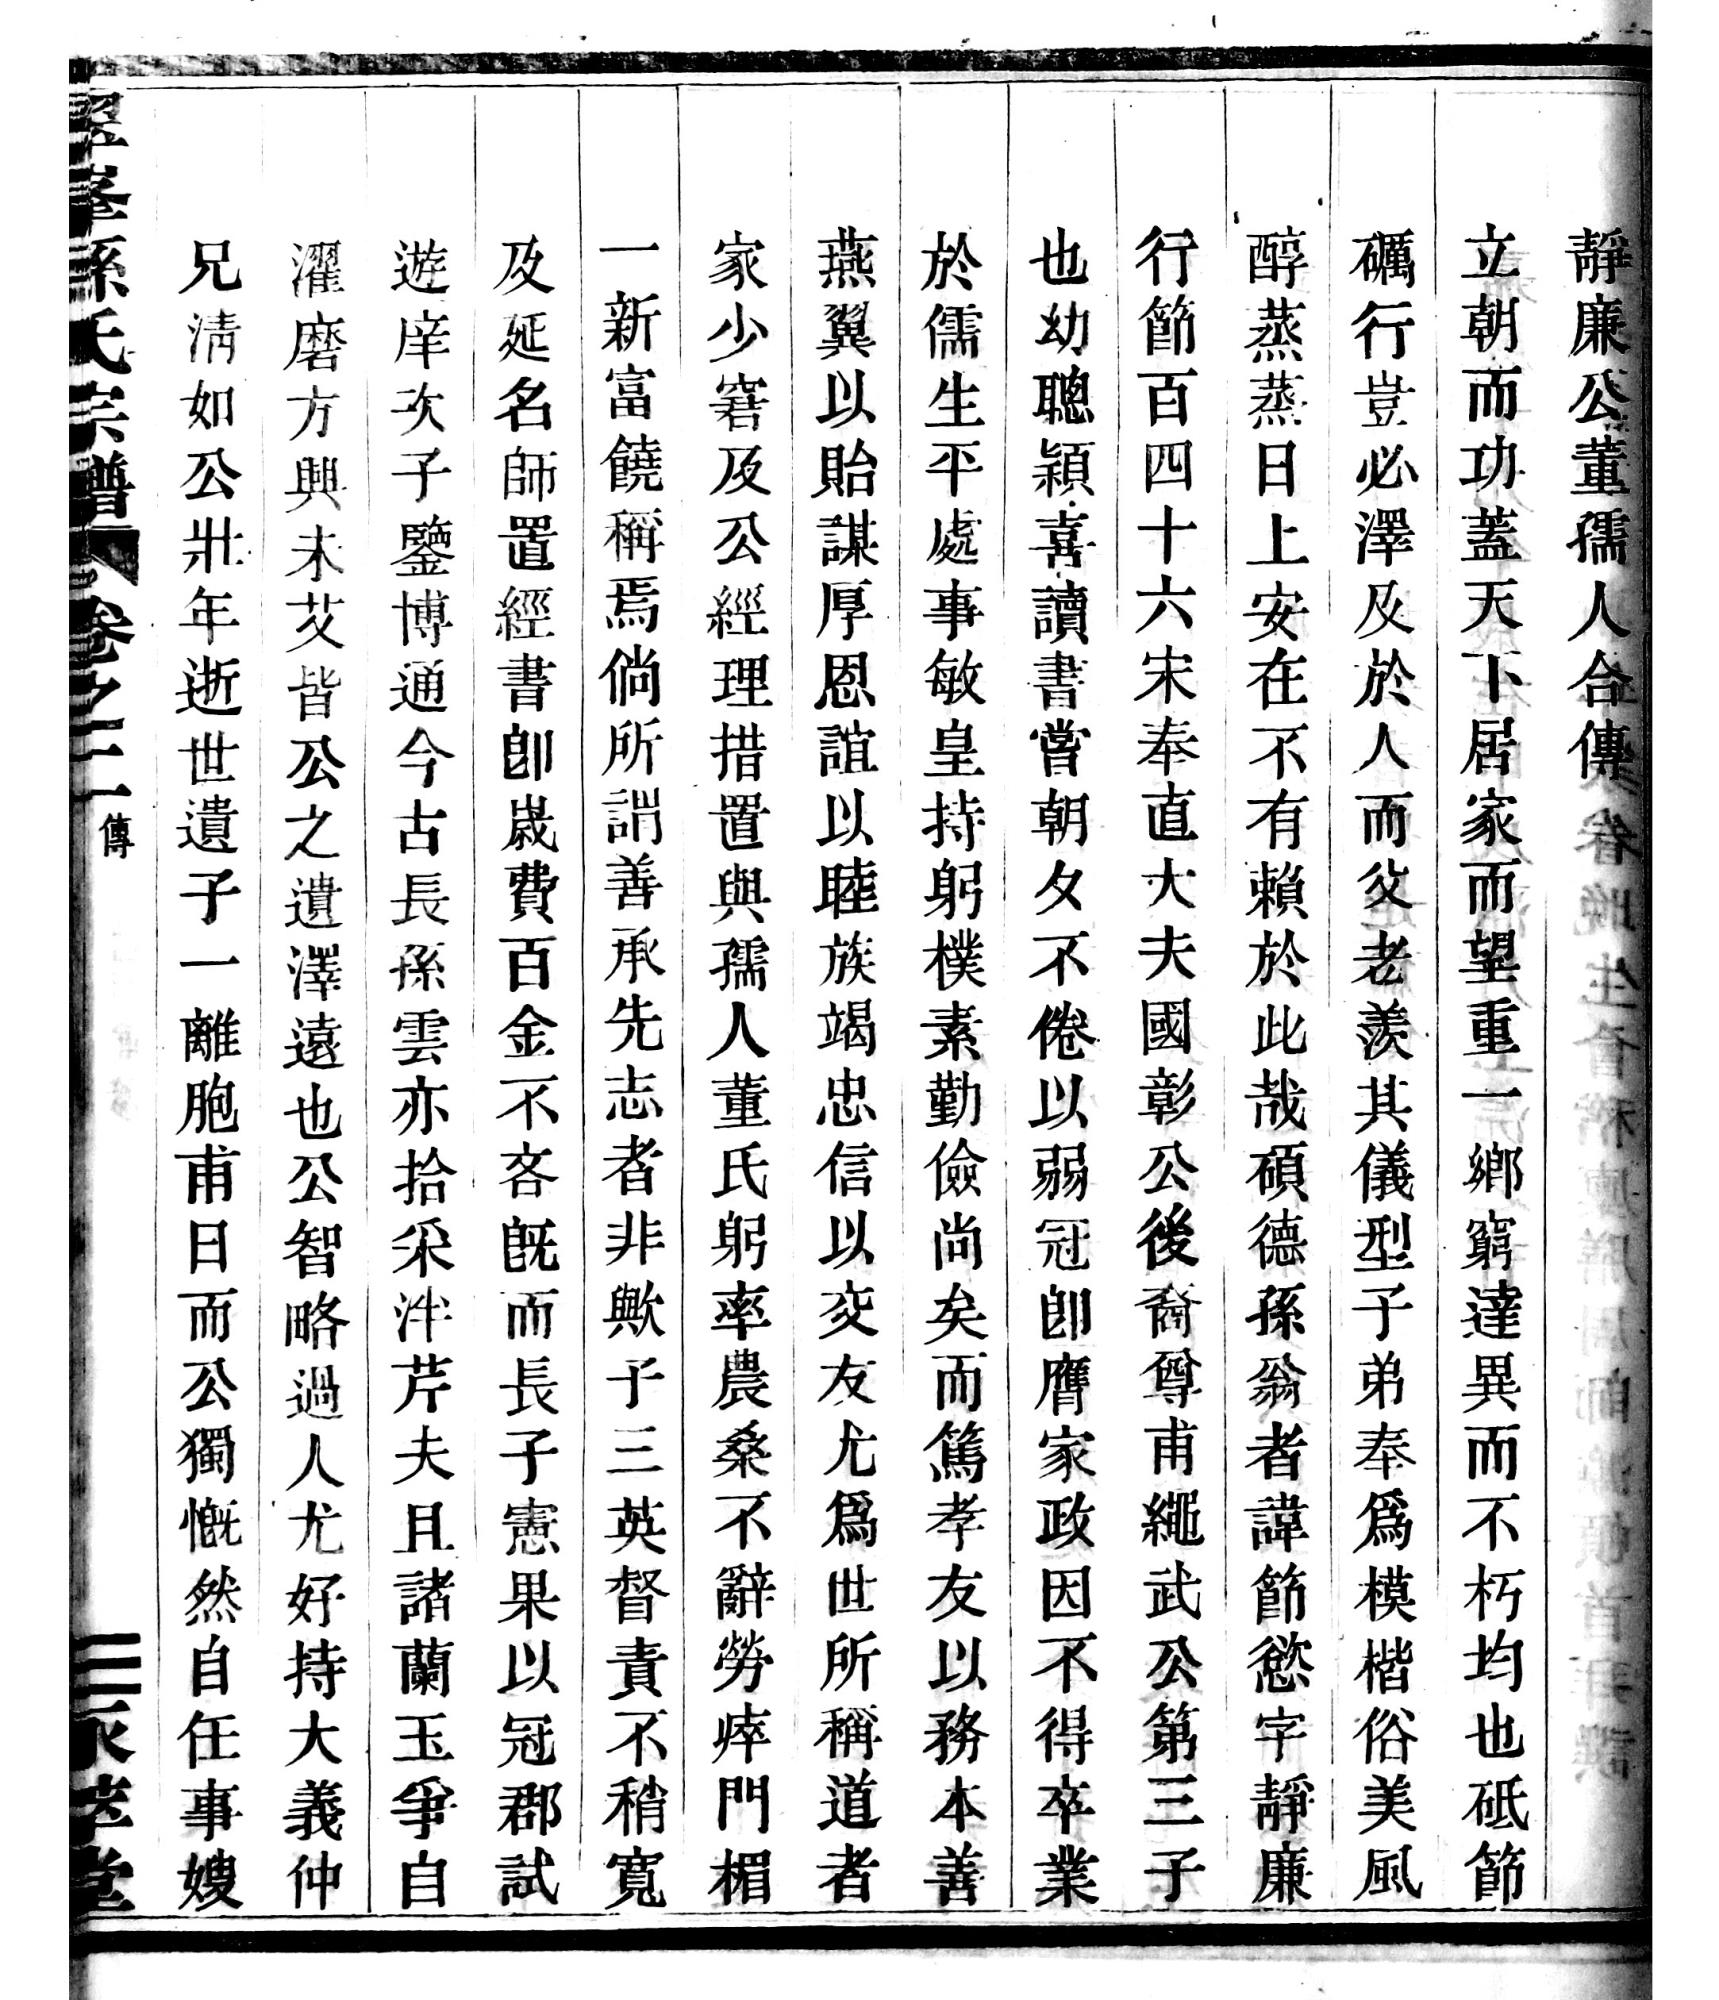 靜廉公董孺人合傳
立朝而功蓋天下居家而望重一鄉窮達異而不朽均也砥節
礪行豈必澤及於人而父老羨其儀型子弟奉爲模楷俗美風
醇蒸蒸日上安在不有賴於此哉碩德孫翁者諱節慾字靜廉
行節百四十六宋奉直大夫國彰公後裔尊甫繩武公第三子
也幼聰穎喜讀書嘗朝夕不倦以弱冠卽膺家政因不得卒業
於儒生平處事敏皇持躬樸素勤儉尚矣而篤孝友以務本善
燕翼以貽謀厚恩誼以睦族竭忠信以交友尤爲世所稱道者
家少窘及公經理措置與孺人董氏躬率農桑不辭勞瘁門楣
一新富饒稱焉倘所謂善承先志者非歟子三英督責不稍寬
及延名師置經書卽歲費百金不吝旣而長子憲果以冠郡試
遊庠次子鑒博通今古長孫雲亦拾采泮芹夫且諸蘭玉爭自
濯磨方興未艾皆公之遺澤遠也公智略過人尤好持大義仲
兄淸如公壯年逝世遺子一離胞甫日而公獨慨然自任事嫂
孫氏宗譜 卷之二 傳 二 承萃堂